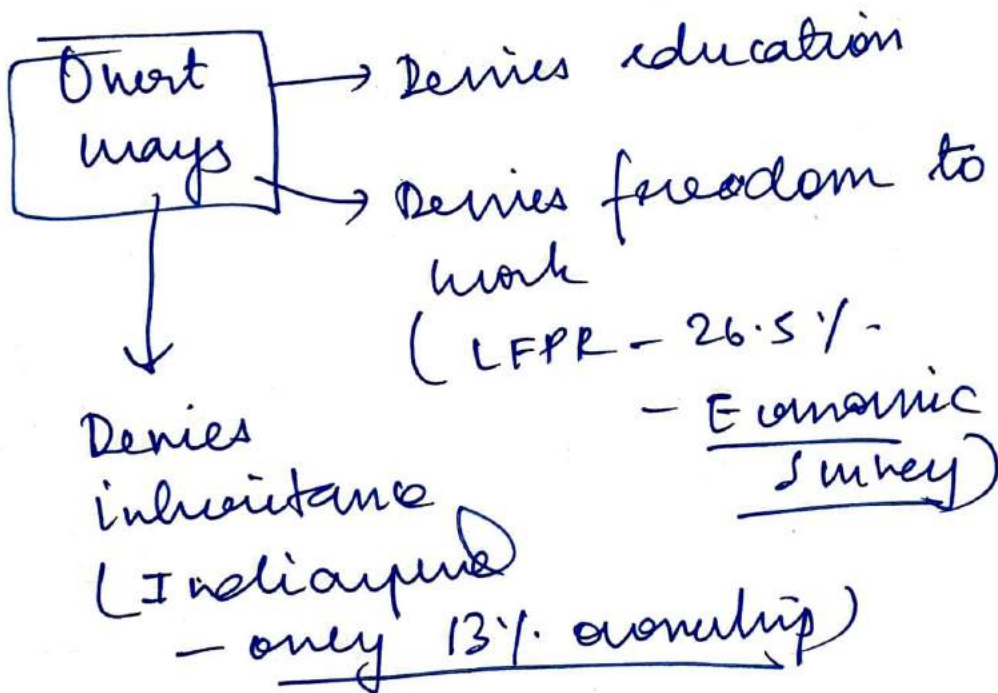 Overt
ways
Denies education
Denies freedom to
work
(LFPR - 26.5%.
- Economic
Survey)
Denies
inheritance
(Indiaspend
- only 13% ownership)